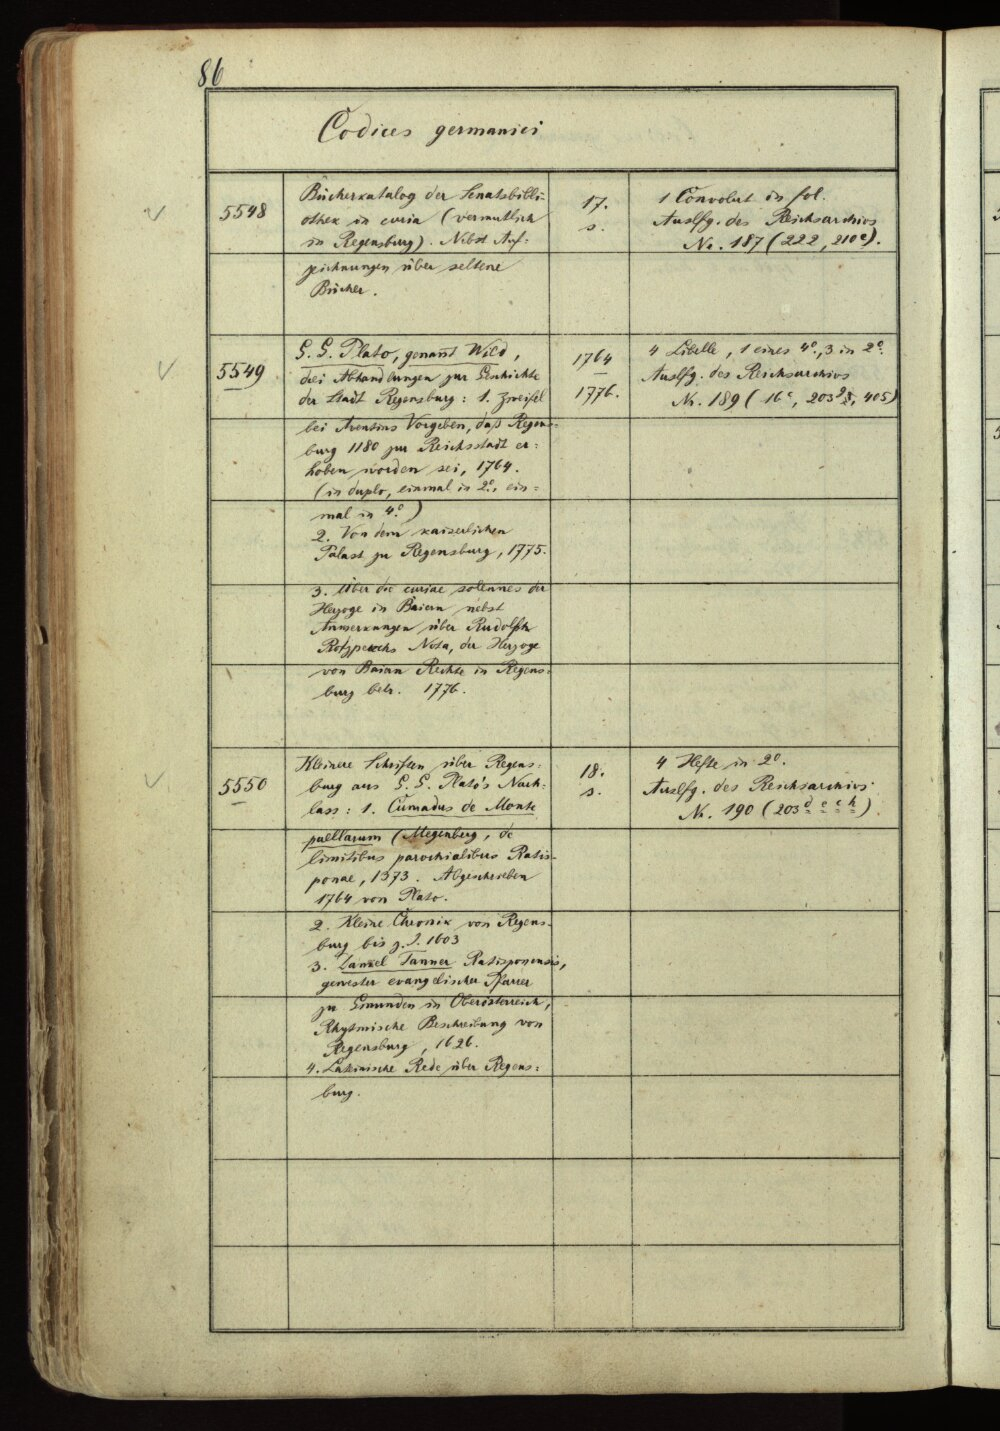 86
Codices germanici
5548
Bücherkatalog der Senatsbibli-
othek in curia (vermutlich
in Regensburg). Nebst Auf-
zeichnungen über seltene
Bücher.
17.
s.
1 Convolut in fol.
Auslfg. des Reichsarchivs
Nr. 187 (222, 210c).
5549
G. G. Plato, genannt Wild,
drei Abhandlungen zur Geschichte
der Stadt Regensburg: 1. Zweifel
bei Aventins Vorgeben, daß Regens-
burg 1180 zur Reichsstadt er-
hoben worden sei, 1764.
(in duplo, einmal in 2o, ein-
mal in 4o)
2. Von dem kaiserlichen
Palast zu Regensburg, 1775.
3. Über die curiae solennes der
Herzoge in Baiern nebst
Anmerkungen über Rudolph
Nota, der Herzoge
von Baiern Rechte in Regens-
burg betr. 1776.
1764
—
1776.
4 Libelle, 1 eines 4o, 3 in 2o.
Auslfg. des Reichsarchivs
Nr. 189 (16c, 203, 405)
5550
Kleinere Schriften über Regens-
burg aus G. G. Plato's Nach-
lass: 1. Cunradus de Monte
puellarum (Megenberg, de
limitibus parochialibus Ratis-
ponae, 1373. Abgeschrieben
1764 von Plato.
2. Kleine Chronik von Regens-
burg bis z. J. 1603
3. Tanner Ratisponensis,
gewester evangelischer Pfarrer
zu Gmunden in Oberösterreich,
Rhytmische Beschreibung von
Regensburg, 1626.
4. Lateinische Rede über Regens-
burg.
18.
s.
4 Hefte in 2o.
Auslfg. des Reichsarchivs
Nr. 190 (203 d e c h)